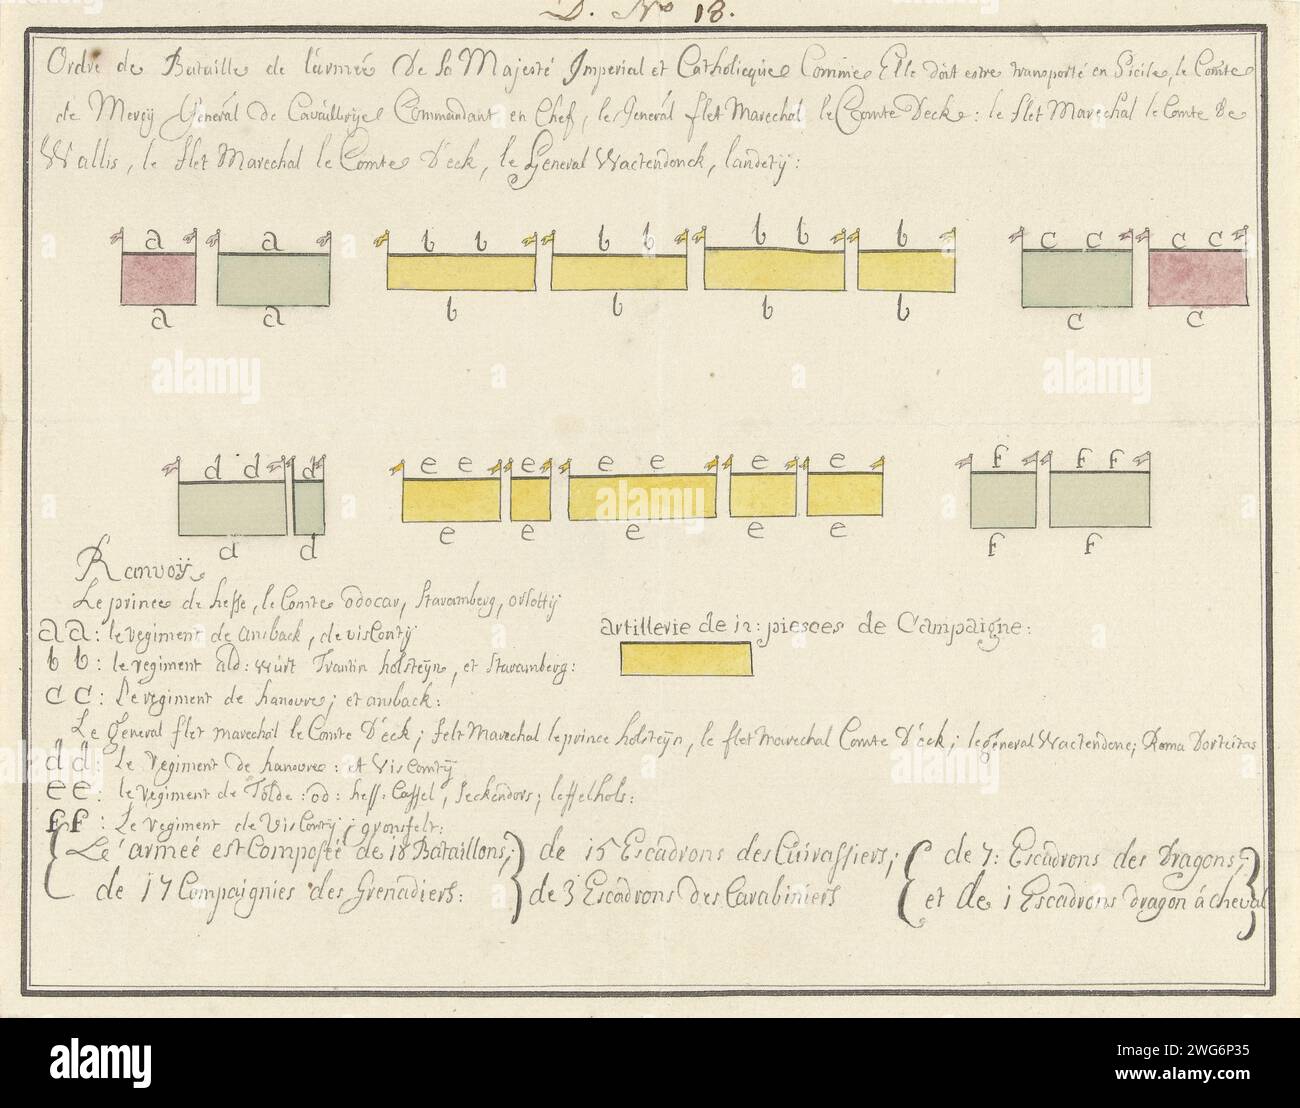 D. No 18.
Ordre de Bataille de l'armeé De Sa Majesté Imperial et Catholicque Comme Elle doit estre transporté en Sicile, le Comte
de Merçÿ General de Cavallerije Commandant en Chef, le General flet Marechal le Comte Deck: le flet Marechal le Comte De
Wallis, le flet Marechal le Comte D'eck, le General Wactendonck, landetÿ:
a a b b b b b b b c c c c
a a b b b b c c
alamy a a alamy
d d d e e e e e e e f f f
d d e e e e e f f
Ranvoÿ
Le prince de hesse, le Comte odocar, Staramberg, orsottÿ
aa: le regiment de ansback, de viscontÿ
artillerie de 12: piesces de Campaigne:
bb: le regiment ald: würt Trantin holsteÿn, et Staramberg:
cc: Le regiment de hanouvre; et ansback:
Le general flet marechal le Comte D'éck; felt Marechal le prince holsteÿn, le flet Marechal Comte D'éck; le general Wactendone; Roma Dorteitas
dd: Le regiment de hanouvre: et Viscomtÿ
ee: le regiment de Tolde: od: hess-Cassel, Seckendors; leffelhols:
ff: Le regiment de Viscontÿ; gronsfelt:
Le armeé est Composté de 18 Bataillons; de 15 Escadrons des Cuirassiers; de 7: Escadrons des Dragons;
de 17 Compaignies des Grenadiers: de 3 Escadrons des Carabiniers et de 1 Escadrons dragon á cheval
alamy
Image ID: 2WG6P35
www.alamy.com